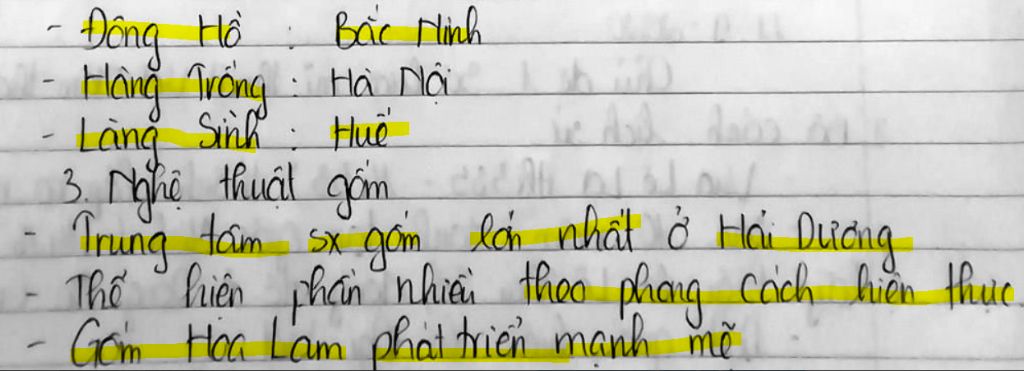 - Đông Hồ : Bắc Ninh
- Hàng Trống : Hà Nội
- Làng Sình : Huế
3. Nghệ thuật gốm
- Trung tâm sx gốm lớn nhất ở Hải Dương
- Thể hiện phần nhiều theo phong cách hiện thực
- Gốm Hoa Lam phát triển mạnh mẽ